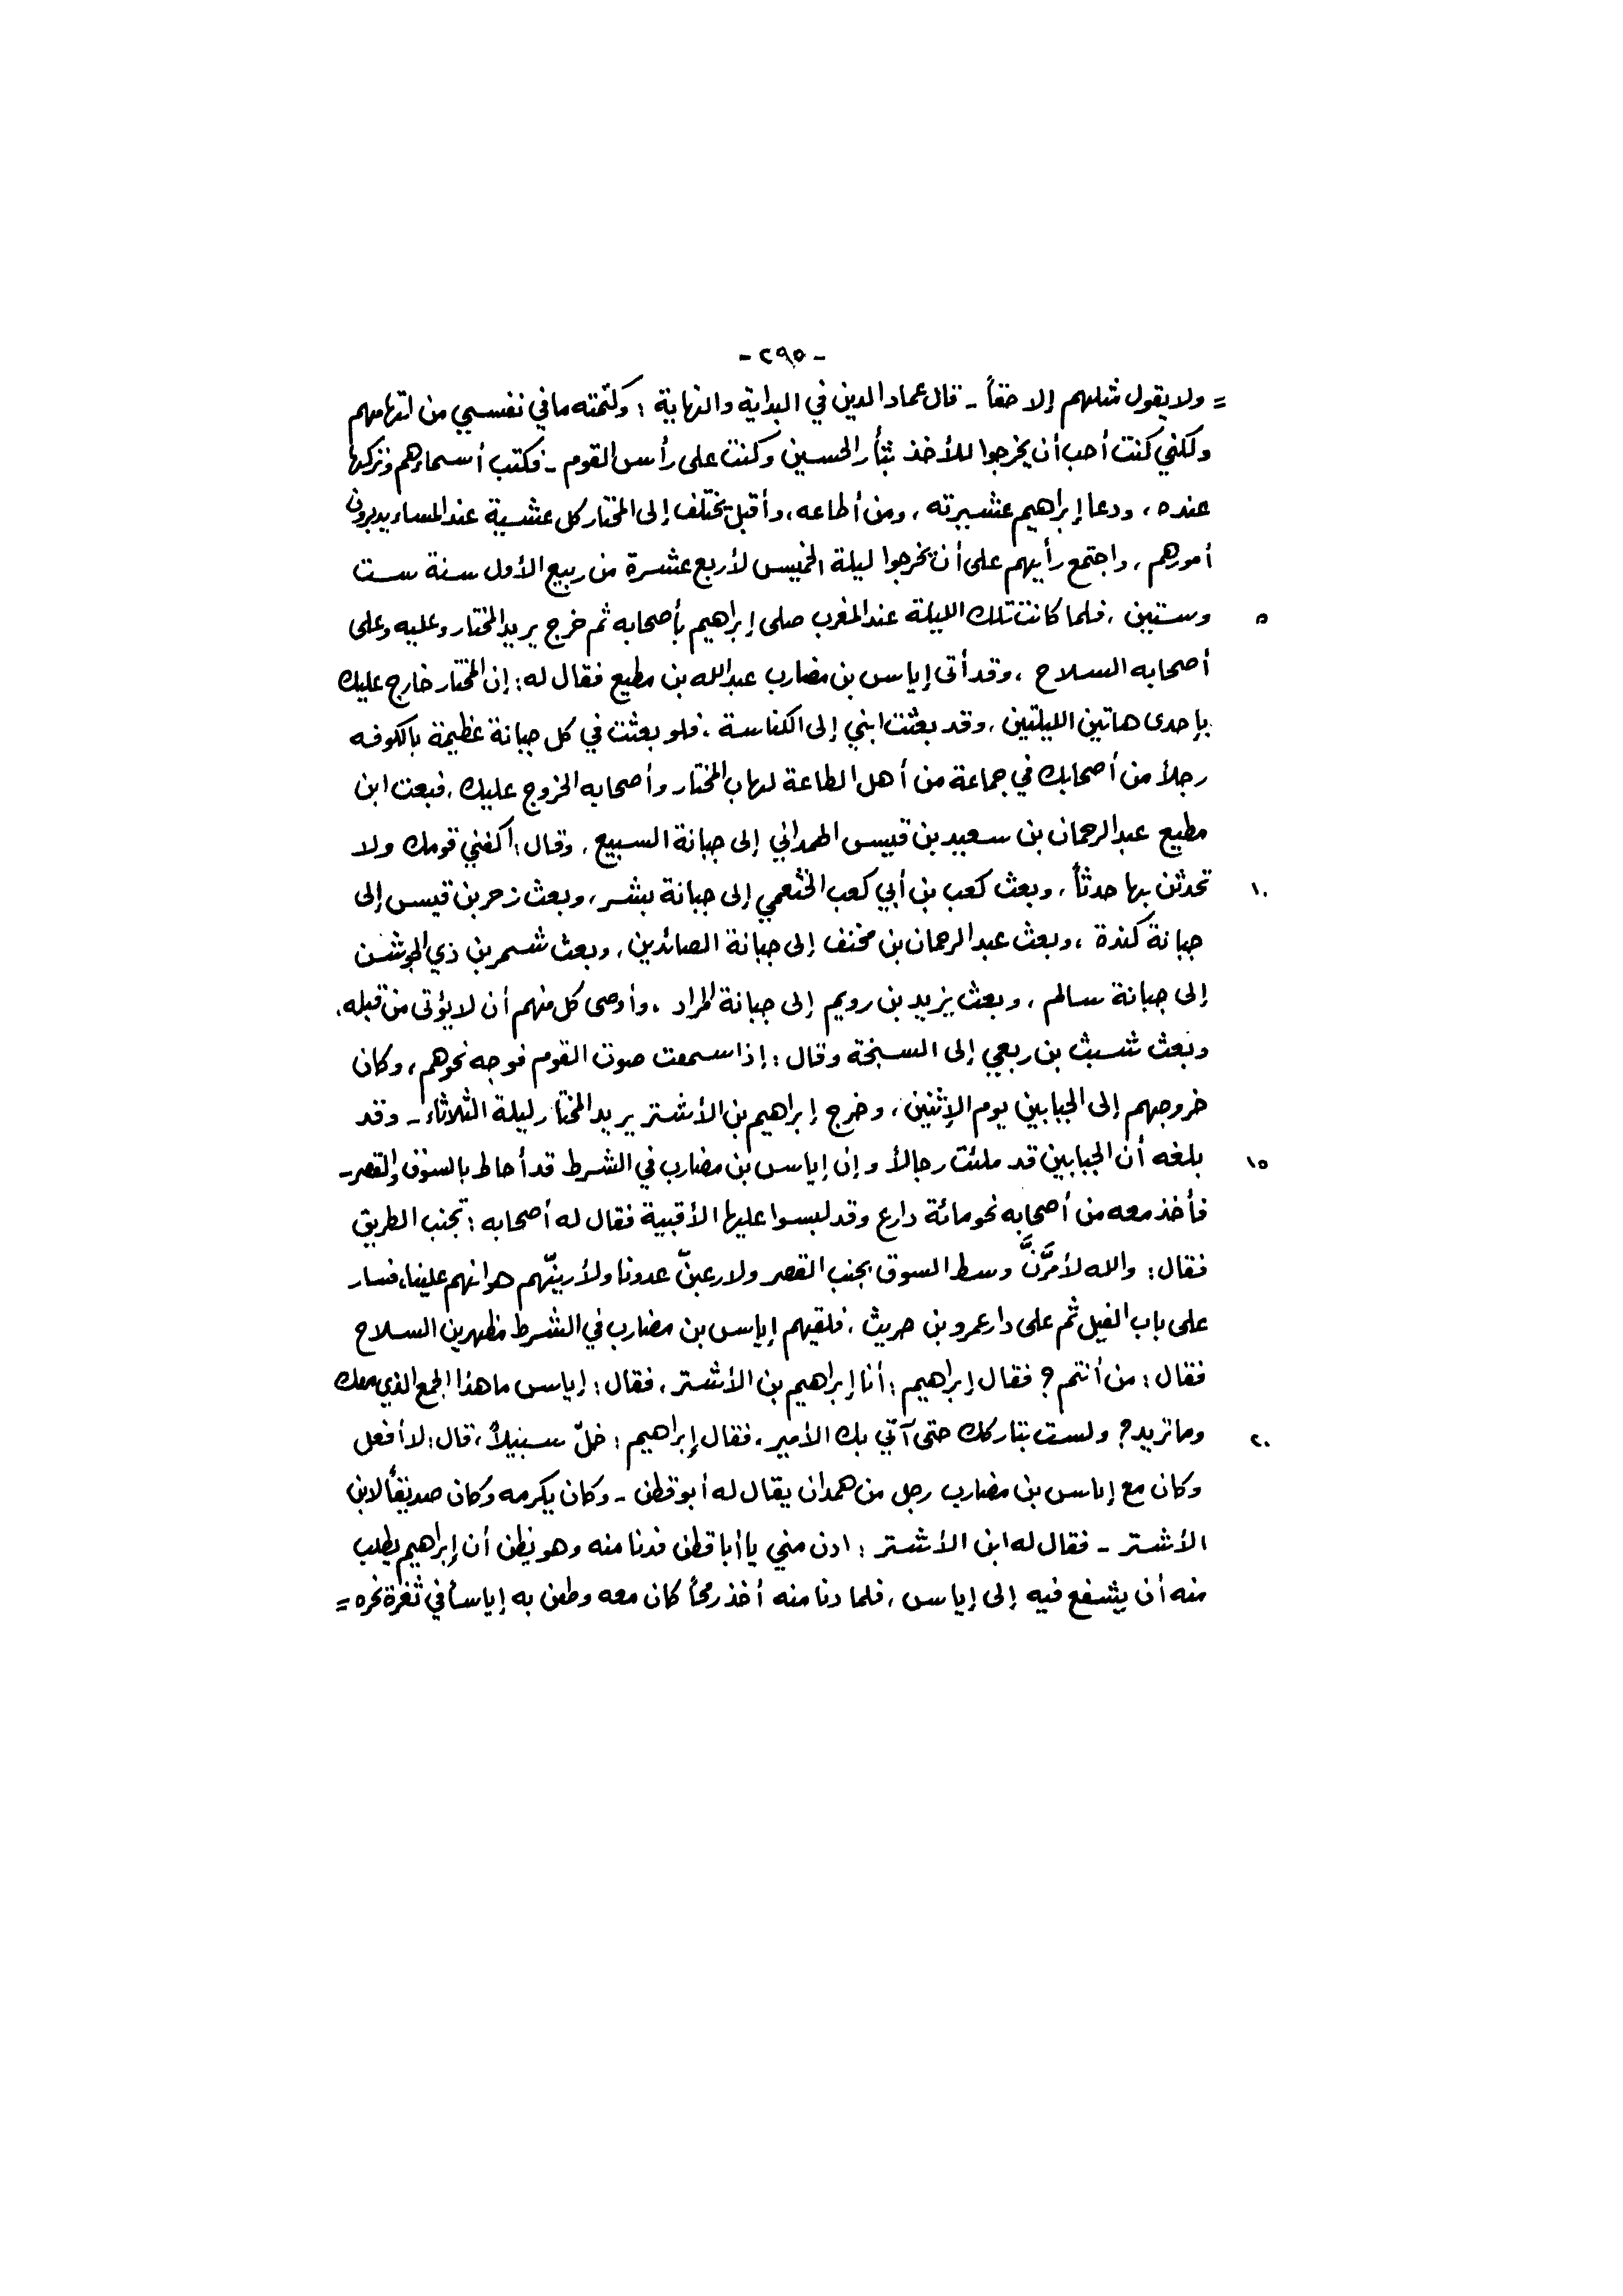 - ٢٩٥ -
= ولا يقول مثلهم إلا حقاً - قال عماد الدين في البداية والنهاية : وكتمته ما في نفسي من اتهامهم
ولكني كنت أحب أن يخرجوا للأخذ بثأر الحسين وكنت على رأس القوم - فكتب أسماءهم وتركها
عنده ، ودعا إبراهيم عشيرته ، ومن أطاعه ، وأقبل يختلف إلى المختار كل عشية عند المساء يدبرون
أمورهم ، واجتمع رأيهم على أن يخرجوا ليلة الخميس لأربع عشرة من ربيع الأول سنة ست
وستين ، فلما كانت تلك الليلة عند المغرب صلى إبراهيم بأصحابه ثم خرج يريد المختار وعليه وعلى ٥
أصحابه السلاح ، وقد أتى إياس بن مضارب عبد الله بن مطيع فقال له : إن المختار خارج عليك
بإحدى هاتين الليلتين ، وقد بعثت ابني إلى الكناسة ، فلو بعثت في كل جبانة عظيمة بالكوفه
رجلاً من أصحابك في جماعة من أهل الطاعة لهاب المختار وأصحابه الخروج عليك ، فبعث ابن
مطيع عبد الرحمان بن سعيد بن قيس الهمداني إلى جبانة السبيع ، وقال : اكفني قومك ولا
تحدثن بها حدثاً ، وبعث كعب بن أبي كعب الخثعمي إلى جبانة بشر ، وبعث زحر بن قيس إلى ١٠
جبانة كندة ، وبعث عبد الرحمان بن مخنف إلى جبانة الصائدين ، وبعث شمر بن ذي الجوشن
إلى جبانة سالم ، وبعث يزيد بن رويم إلى جبانة المراد ، وأوصى كل منهم أن لا يؤتى من قبله ،
وبعث شبث بن ربعي إلى السبخة وقال : إذا سمعت صوت القوم فوجه نحوهم ، وكان
خروجهم إلى الجبابين يوم الإثنين ، وخرج إبراهيم بن الأشتر يريد المختار ليلة الثلاثاء - وقد
بلغه أن الجبابين قد ملئت رجالاً وإن إياس بن مضارب في الشرط قد أحاط بالسوق والقصر - ١٥
فأخذ معه من أصحابه نحو مائة دارع وقد لبسوا عليها الأقبية فقال له أصحابه : تجنب الطريق
فقال : والله لأمرَّنَّ وسط السوق بجنب القصر ولارعبنّ عدونا ولأرينّهم هوانهم علينا ، فسار
على باب الفيل ثم على دار عمرو بن حريث ، فلقيهم إياس بن مضارب في الشرط مظهرين السلاح
فقال : من أنتم ؟ فقال إبراهيم : أنا إبراهيم بن الأشتر ، فقال : إياس ما هذا الجمع الذي معك
وما تريد ؟ ولست بتاركك حتى آتي بك الأمير ، فقال إبراهيم : خلّ سبيلاً ، قال : لا أفعل ٢٠
وكان مع إياس بن مضارب رجل من همدان يقال له أبو قطن - وكان يكرمه وكان صديقاً لابن
الأشتر - فقال له ابن الأشتر : ادن مني يا أبا قطن فدنا منه وهو يظن أن إبراهيم يطلب
منه أن يشفع فيه إلى إياس ، فلما دنا منه أخذ رمحاً كان معه وطعن به إياساً في ثغرة نحره =